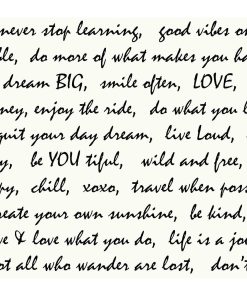 never stop learning, good vibes on
ble, do more of what makes you ha
dream BIG, smile often, LOVE,
ney, enjoy the ride, do what you l
quit your day dream, live Loud, s
y, be YOU tiful, wild and free,
py, chill, xoxo, travel when poss
reate your own sunshine, be kind,
e & love what you do, life is a jo
ot all who wander are lost, don't